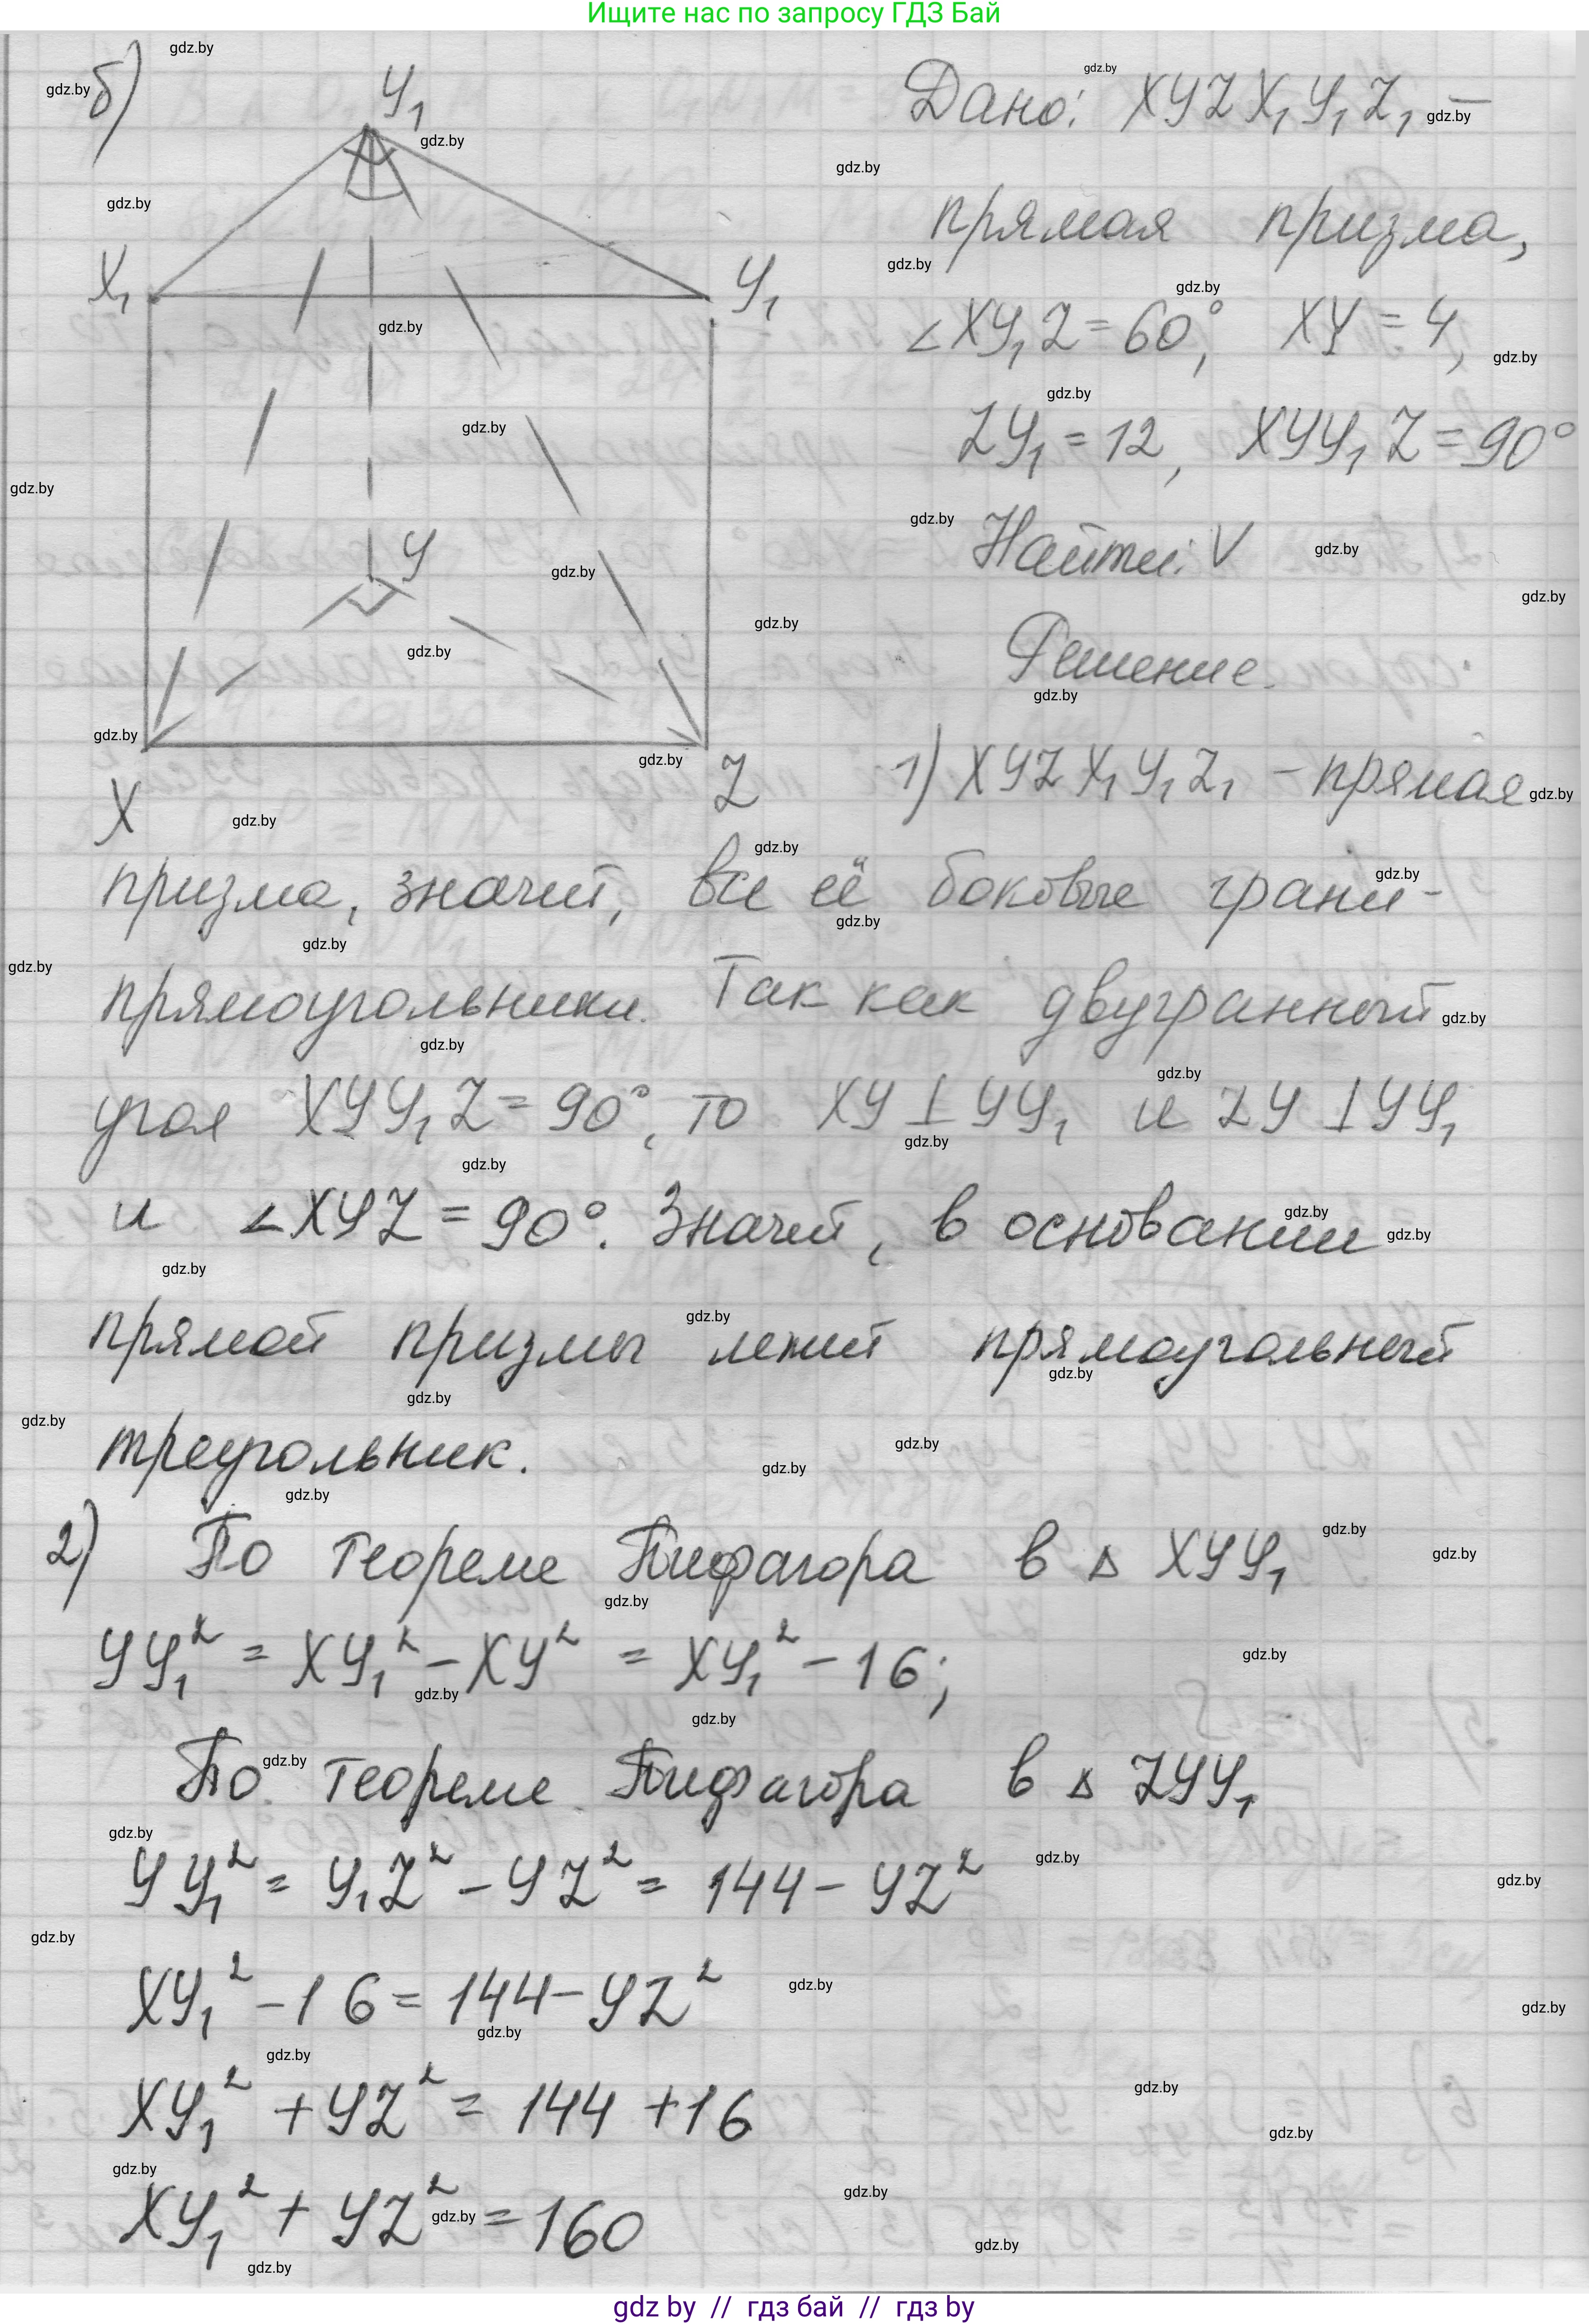 Ищите нас по запросу ГДЗ Бай
б)
У₁
Дано: XYZX₁Y₁Z₁ –
прямая призма,
X₁
У₁
∠XY₁Z = 60°, XY = 4,
ZY₁ = 12, XYY₁Z = 90°
Найти: V
У
Решение.
X
Z
1) XYZX₁Y₁Z₁ – прямая
призма, значит, все её боковые грани –
прямоугольники. Так как двугранный
угол XYY₁Z = 90°, то XY ⊥ YY₁ и ZY ⊥ YY₁
и ∠XYZ = 90°. Значит, в основании
прямой призмы лежит прямоугольный
треугольник.
2) По теореме Пифагора в △ XYY₁
YY₁² = XY₁² – XY² = XY₁² – 16;
По теореме Пифагора в △ ZYY₁
YY₁² = Y₁Z² – YZ² = 144 – YZ²
XY₁² – 16 = 144 – YZ²
XY₁² + YZ² = 144 + 16
XY₁² + YZ² = 160
gdz by // гдз бай // гдз by